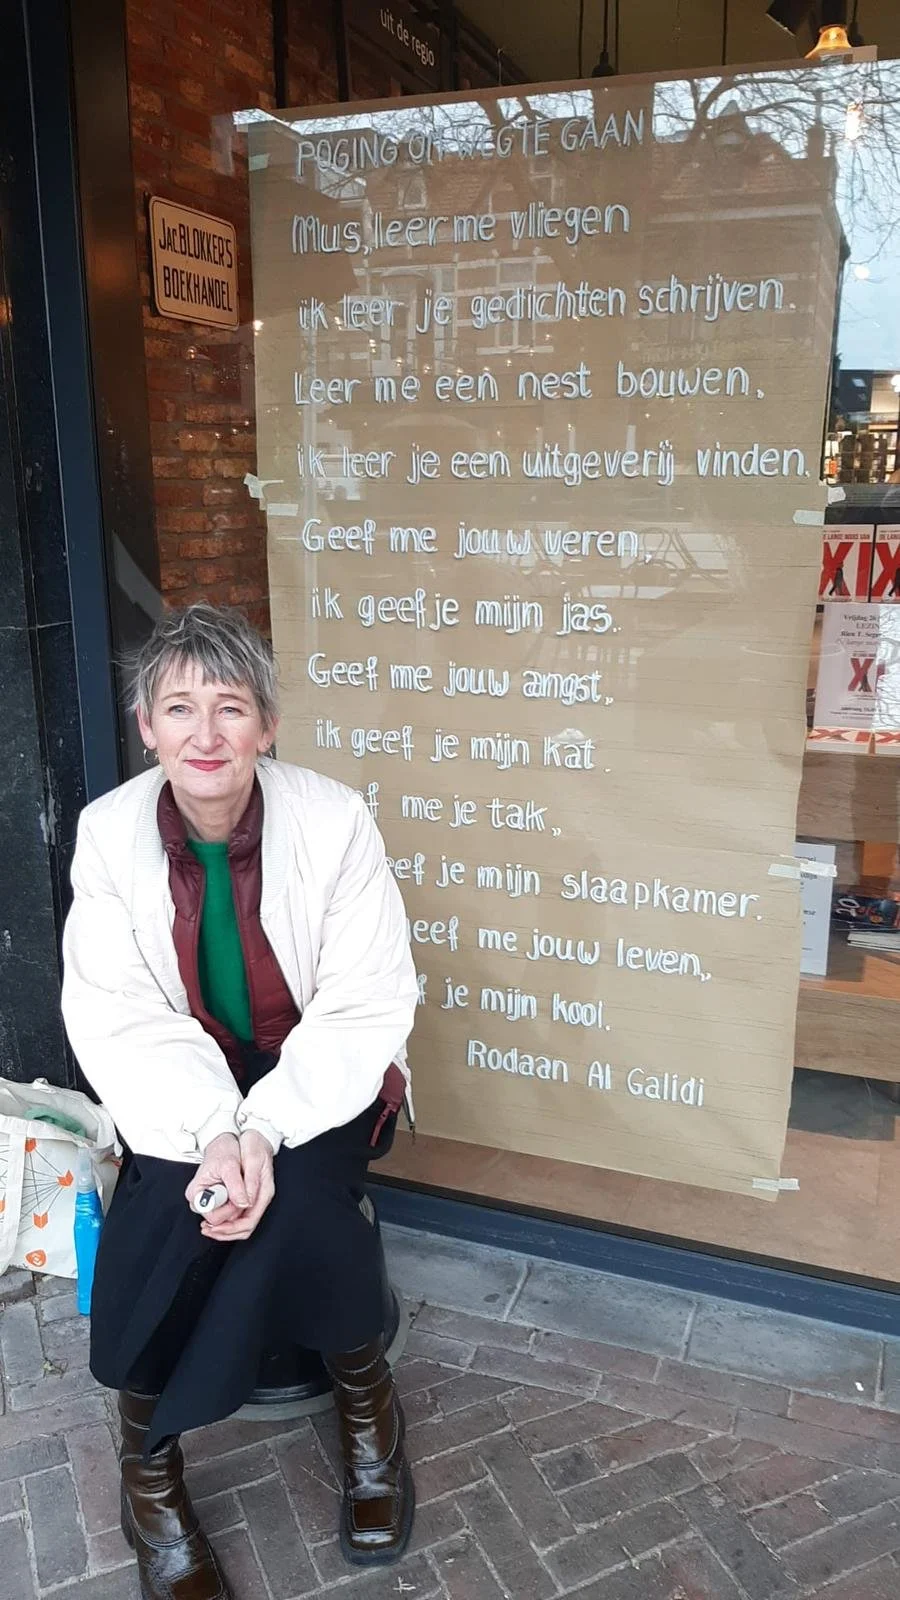 uit de regio
POGING OM WEG TE GAAN
Mus, leer me vliegen
ik leer je gedichten schrijven.
Leer me een nest bouwen,
ik leer je een uitgeverij vinden.
Geef me jouw veren,
ik geef je mijn jas.
Geef me jouw angst,
ik geef je mijn kat.
me je tak,
je mijn slaapkamer.
me jouw leven,
je mijn kool.
Rodaan Al Galidi
JAC. BLOKKER'S
BOEKHANDEL
XIX
Vrijdag 26
LEZIN
XI
XIX